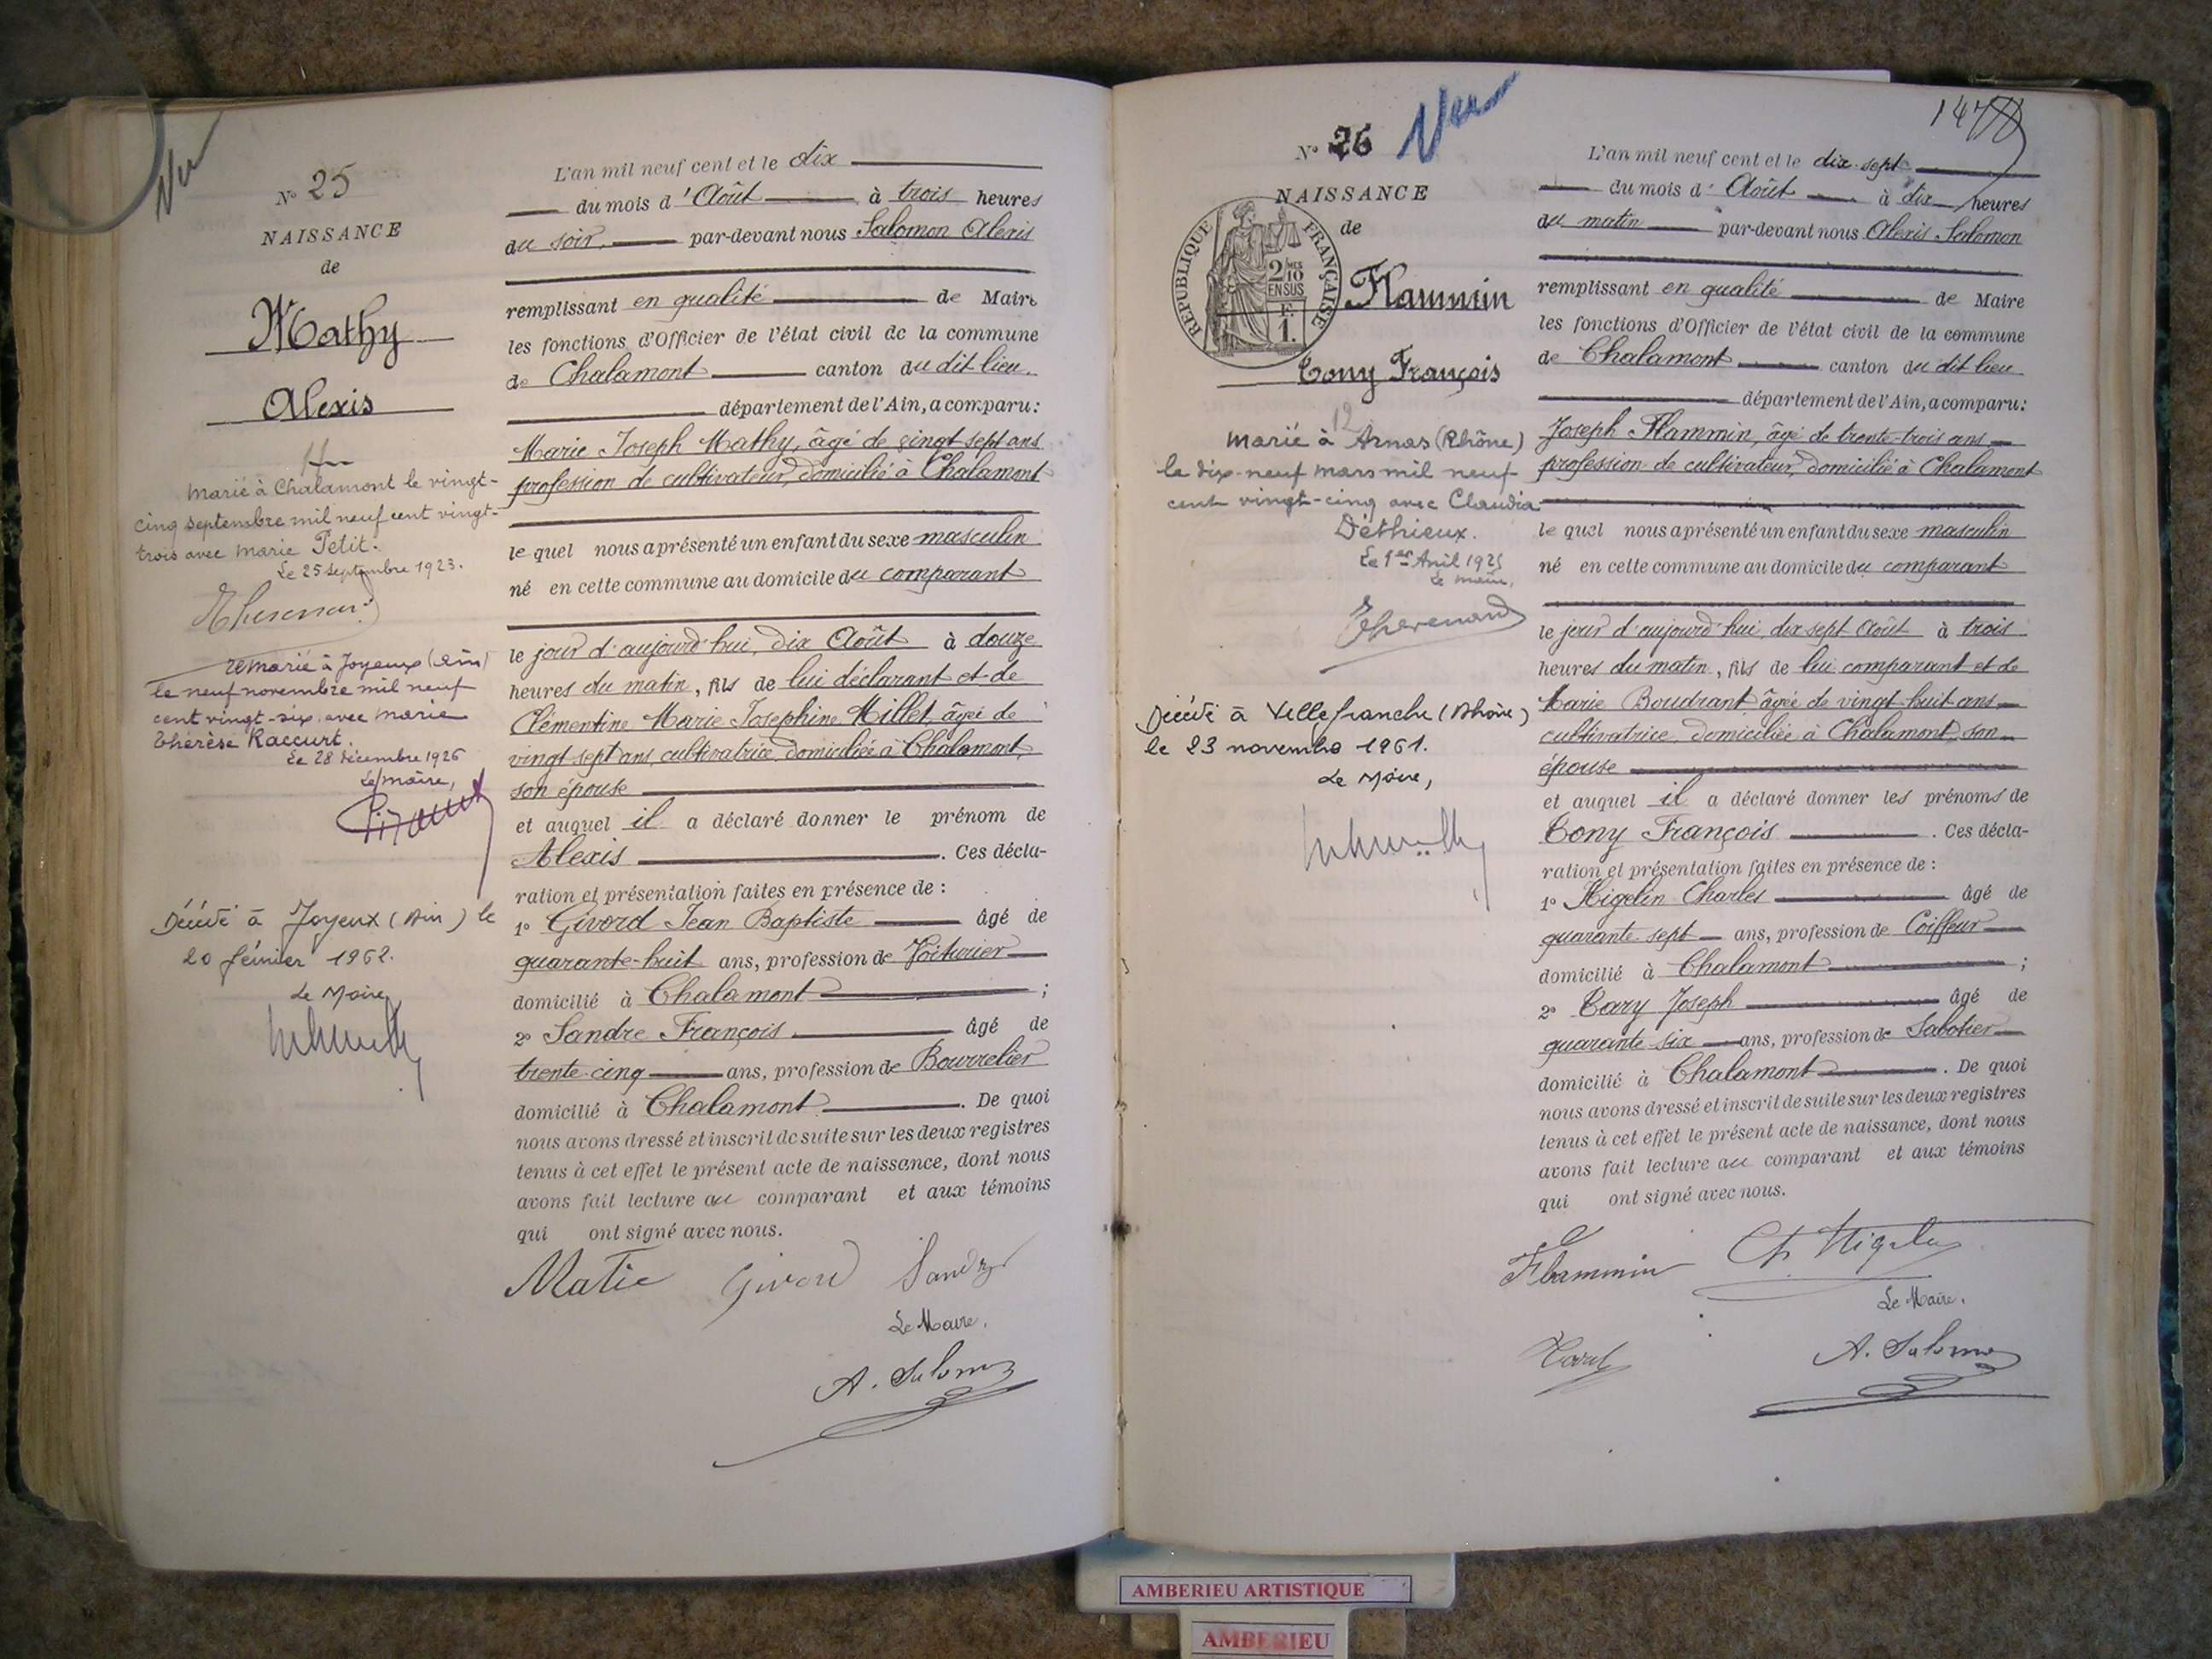 Vu
N° 25
NAISSANCE
de
Mathy
Alexis
Marié à Chalamont le vingt-
cinq septembre mil neuf cent vingt-
trois avec Marie Petit.
Le 25 septembre 1923.
Remarié à Joyeux (Ain)
le neuf novembre mil neuf
cent vingt-six avec Marie
Thérèse Raccurt.
Le 28 décembre 1926
Le Maire,
Décédé à Joyeux (Ain) le
20 février 1962.
Le Maire
L'an mil neuf cent et le dix
du mois d'Août à trois heures
du soir, par-devant nous Salomon Alexis
remplissant en qualité de Maire
les fonctions d'Officier de l'état civil de la commune
de Chalamont canton du dit lieu.
département de l'Ain, a comparu:
Marie Joseph Mathy, âgé de vingt sept ans
profession de cultivateur, domicilié à Chalamont
le quel nous a présenté un enfant du sexe masculin
né en cette commune au domicile du comparant
le jour d'aujourd'hui, dix Août à douze
heures du matin, fils de lui déclarant et de
Clémentine Marie Josephine Millet, âgée de
vingt sept ans, cultivatrice, domiciliée à Chalamont,
son épouse
et auquel il a déclaré donner le prénom de
Alexis. Ces décla-
ration et présentation faites en présence de :
1° Givord Jean Baptiste âgé de
quarante-huit ans, profession de Voiturier
domicilié à Chalamont ;
2° Sandre François âgé de
trente-cinq ans, profession de Bourrelier
domicilié à Chalamont. De quoi
nous avons dressé et inscrit de suite sur les deux registres
tenus à cet effet le présent acte de naissance, dont nous
avons fait lecture au comparant et aux témoins
qui ont signé avec nous.
Matie Givord Sandre
Le Maire,
A. Salomon
N° 26 Vu
NAISSANCE
de
REPUBLIQUE FRANÇAISE
2/10 MES
EN SUS
F.
1.
Flammin
Tony François
12
Marié à Arnas (Rhône)
le dix-neuf mars mil neuf
cent vingt-cinq avec Claudia
Déthieux.
Le 1er Avril 1925
Le Maire,
Thévenard
Décédé à Villefranche (Rhône)
le 23 novembre 1961.
Le Maire,
L'an mil neuf cent et le dix-sept
du mois d'Août à dix heures
du matin par-devant nous Alexis Salomon
remplissant en qualité de Maire
les fonctions d'Officier de l'état civil de la commune
de Chalamont canton du dit lieu
département de l'Ain, a comparu:
Joseph Flammin, âgé de trente-trois ans
profession de cultivateur, domicilié à Chalamont
le quel nous a présenté un enfant du sexe masculin
né en cette commune au domicile du comparant
le jour d'aujourd'hui, dix sept Août à trois
heures du matin, fils de lui comparant et de
Marie Boudrant âgée de vingt-huit ans
cultivatrice, domiciliée à Chalamont, son
épouse
et auquel il a déclaré donner les prénoms de
Tony François. Ces décla-
ration et présentation faites en présence de :
1° Higelin Charles âgé de
quarante-sept ans, profession de Coiffeur
domicilié à Chalamont ;
2° Cary Joseph âgé de
quarante six ans, profession de Sabotier
domicilié à Chalamont. De quoi
nous avons dressé et inscrit de suite sur les deux registres
tenus à cet effet le présent acte de naissance, dont nous
avons fait lecture au comparant et aux témoins
qui ont signé avec nous.
Flammin Ch Higelin
Le Maire,
A. Salomon
AMBERIEU ARTISTIQUE
AMBERIEU